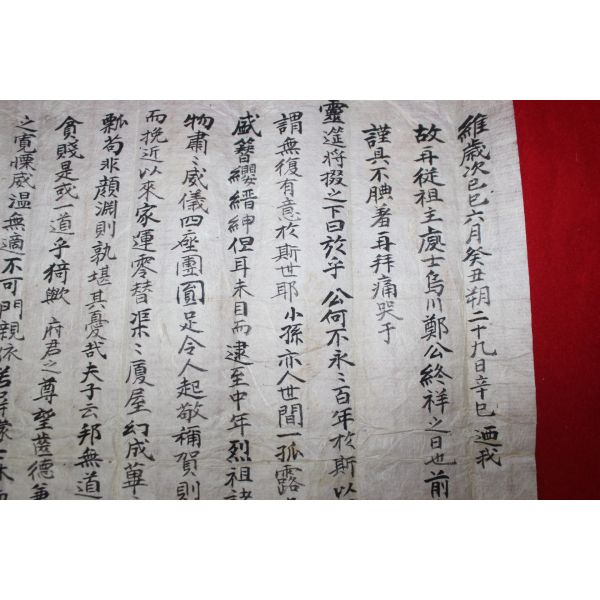 維歲次己巳六月癸丑朔二十九日辛巳迺我
故再從祖主處士烏川鄭公終祥之日也前
謹具不腆羞再拜痛哭于
靈筵將掇之下曰於乎 公何不永〻百年於斯以
謂無復有意於斯世耶 小孫亦人世間一孤露
盛簪纓縉紳但耳未目而逮至中年烈祖諸
物肅〻威儀四座團圓足令人起敬稱賀則
而挽近以來家運零替渠〻廈屋幻成蓽
瓢苟非顔淵則孰堪其憂哉夫子云邦無道
貧賤是或一道乎猗歟 府君之尊望蓍德兼
之寬慄威溫無適不可門親依